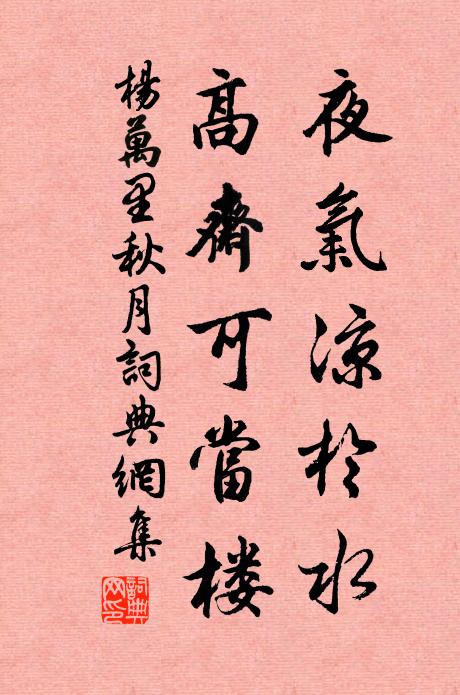 夜氣涼於水
高齋可當楼
楊萬里秋月詞典網集
詞典网印